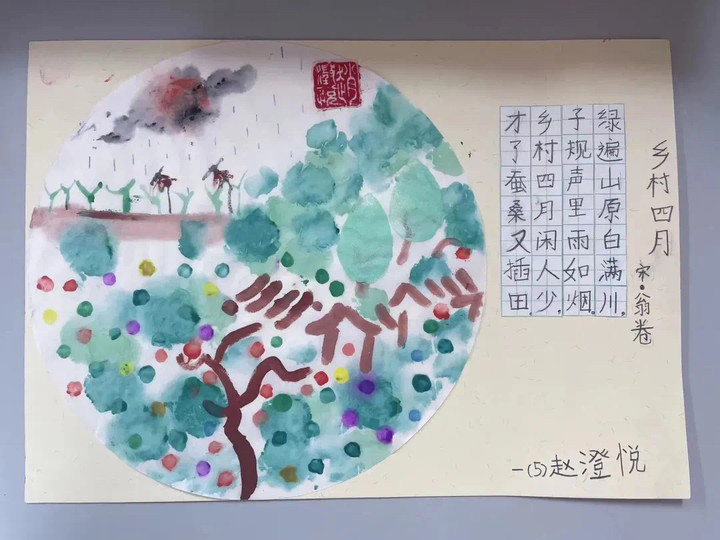 乡村四月
宋·翁卷
绿遍山原白满川。
子规声里雨如烟。
乡村四月闲人少。
才了蚕桑又插田。
一(5)赵澄悦